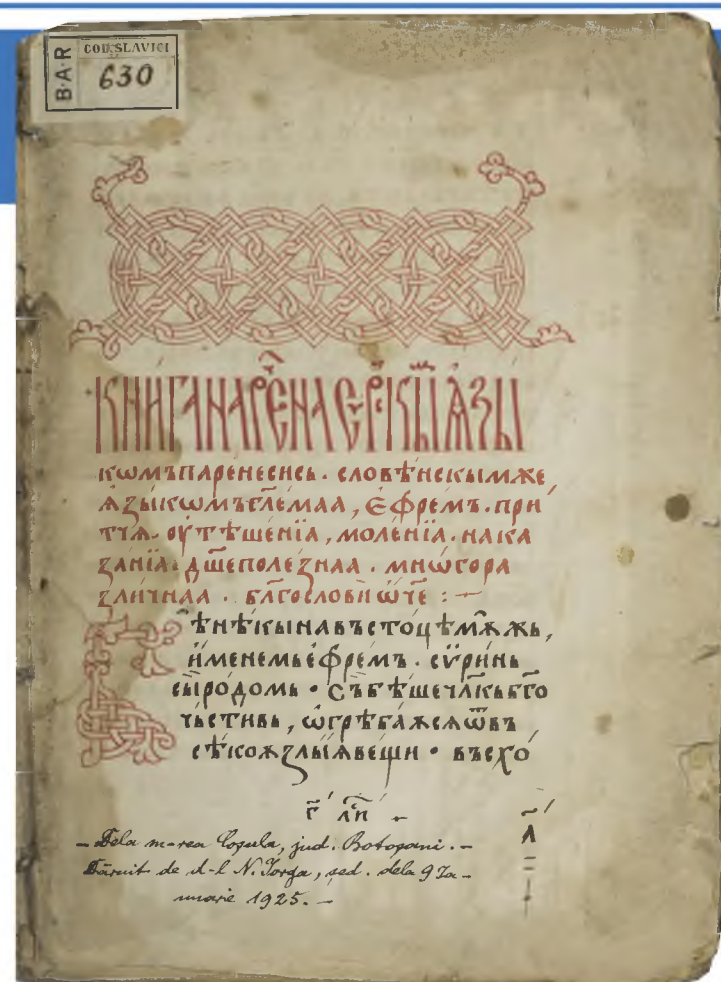 B·A·R
COD. SLAVICI
630
КНИГА НАРЕ҇НА Є҆РЬСКЫ҇И ꙖЗЫ
КѠМЪ ПАРЕНЕСИСЬ · СЛОВѢНСКЫМ ЖЕ
ѦЗЫКѠМЪ ГЛ҃ЕМАА , ЄФРЕМЪ · ПРИ
ТЧѦ · ОУТѢШЕНЇА , МОЛЕНЇА · НАКА
ЗАНЇА · ДШ҃ЕПОЛЕЗНАА · МНѠГОРА
ЗЛИЧНАА · БЛ҃ГОСЛОВИ Ѡ҆Ч҃Е : ~
БѢ НѢКЫ НА ВЪСТОЦѢ МѪЖЬ,
ИМЕНЕМЬ ЕФРЕМЪ · СѴРИНЬ
СЫ РОДОМЬ · СЪ БѢШЕ ЧЛ҃КЬ БЛ҃ГО
ЧЬСТИВЬ , ѠГРѢБАѪСѦ Ѿ В
СѢКОѪ ЗЛЫѦ ВЕЩИ · ВЪСХО
– Dela m-rea Coșula, jud. Botoșani. –
Dăruit de d-l N. Iorga, șed. dela 9 Ia-
nuarie 1925. –